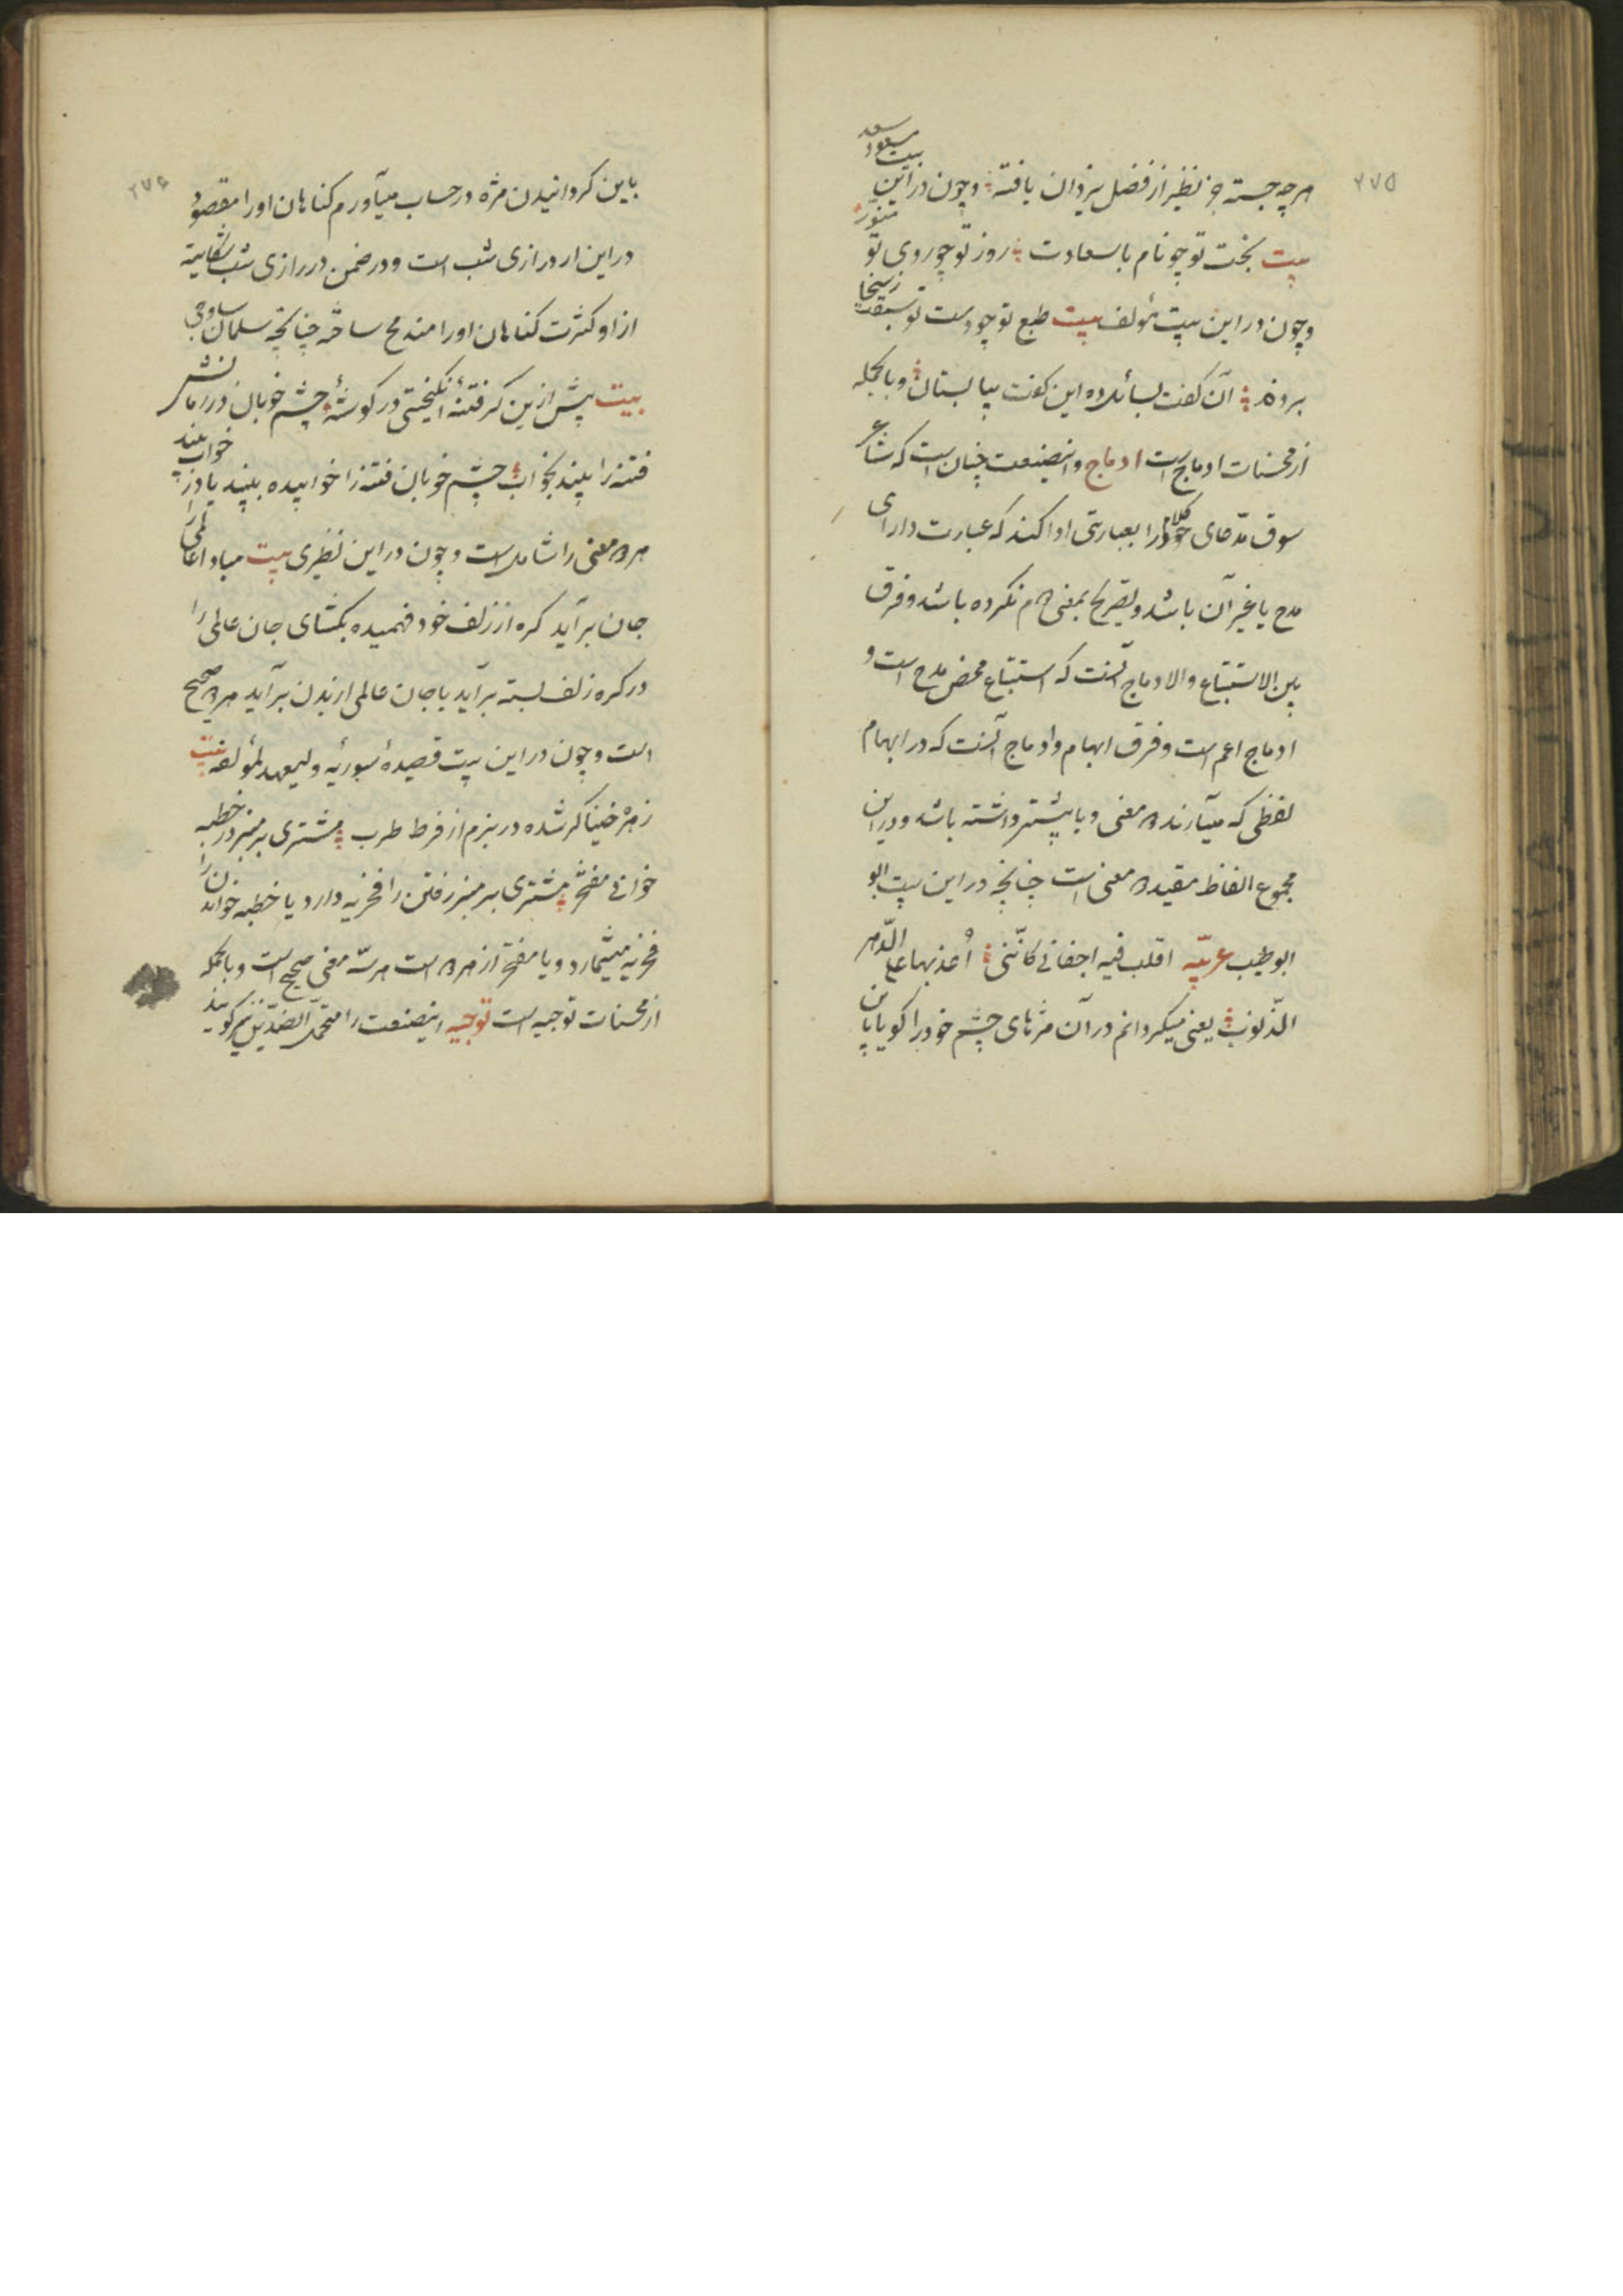 ۲۷۵
هر چه جسته جز نظیر از فضل یزدان یافته وچون دراین بیت مسعود سعد
بیت بخت تو چو نام باسعادت روز تو چو روی تو منور
وچون دراین بیت مؤلف بیت طبع تو چو دست تو
بروند آن گفت بسائل ده این گفت بیا بستان وبالجمله
از محسنات ادماج است ادماج واینصنعت چنان است که شاعر
سوق مدعای کلام خود را بعبارتی ادا کند که عبارت دارای
مدح یا غیر آن باشد وتصریح بمعنی هم نکرده باشد وفرق
بین الاستتباع والادماج آنست که استتباع محض مدح است و
ادماج اعم است وفرق ابهام وادماج آنست که در ابهام
لفظی که میآرند دو معنی ویا بیشتر داشته باشد ودراین
مجموع الفاظ مفید دو معنی است چنانچه در این بیت ابو
ابوطیب عربیّه اقلب فیه اجفانی کانّنی أعدّ بها علی الدّهر
الذّنوب یعنی میگردانم درآن مژهای چشم خود را گویا باین
۲۷۶
باین گردانیدن مژه درحساب میآورم گناهان اورا مقصود
دراین ار درازی شب است ودرضمن دررازی شب شکایت
از او کثرت گناهان اورا مندمج ساخته چنانچه سلمان ساوجی
بیت پیش ازین گر فتنهٔ انگیختی در گوشهٔ چشم خوبان در زمانش
فتنه را بیند بخواب چشم خوبان فتنه را خوابیده بیند یا در خواب بیند
هر دو معنی را شامل است وچون دراین نظیری بیت مباد عالمی را
جان برآید گره از زلف خود فهمیده بگشای جان عالمی را
در گره زلف بسته برآید یا جان عالمی از بدن برآید هر دو صحیح
است وچون دراین بیت قصیدهٔ سوریّه ولیعهد لمؤلفه بیت
زهره خنیاگر شده در بزم از فرط طرب مشتری بر منبر در خطبه
خوانی مفتخر مشتری بر منبر رفتن را فخریه دارد یا خطبه خواندن را
فخریه میشمارد ویا مفتخر از هر دو است هر سه معنی صحیح است وبالجمله
از محسنات توجیه است توجیه اینصنعت را محتمل الضدّین نیز گویند